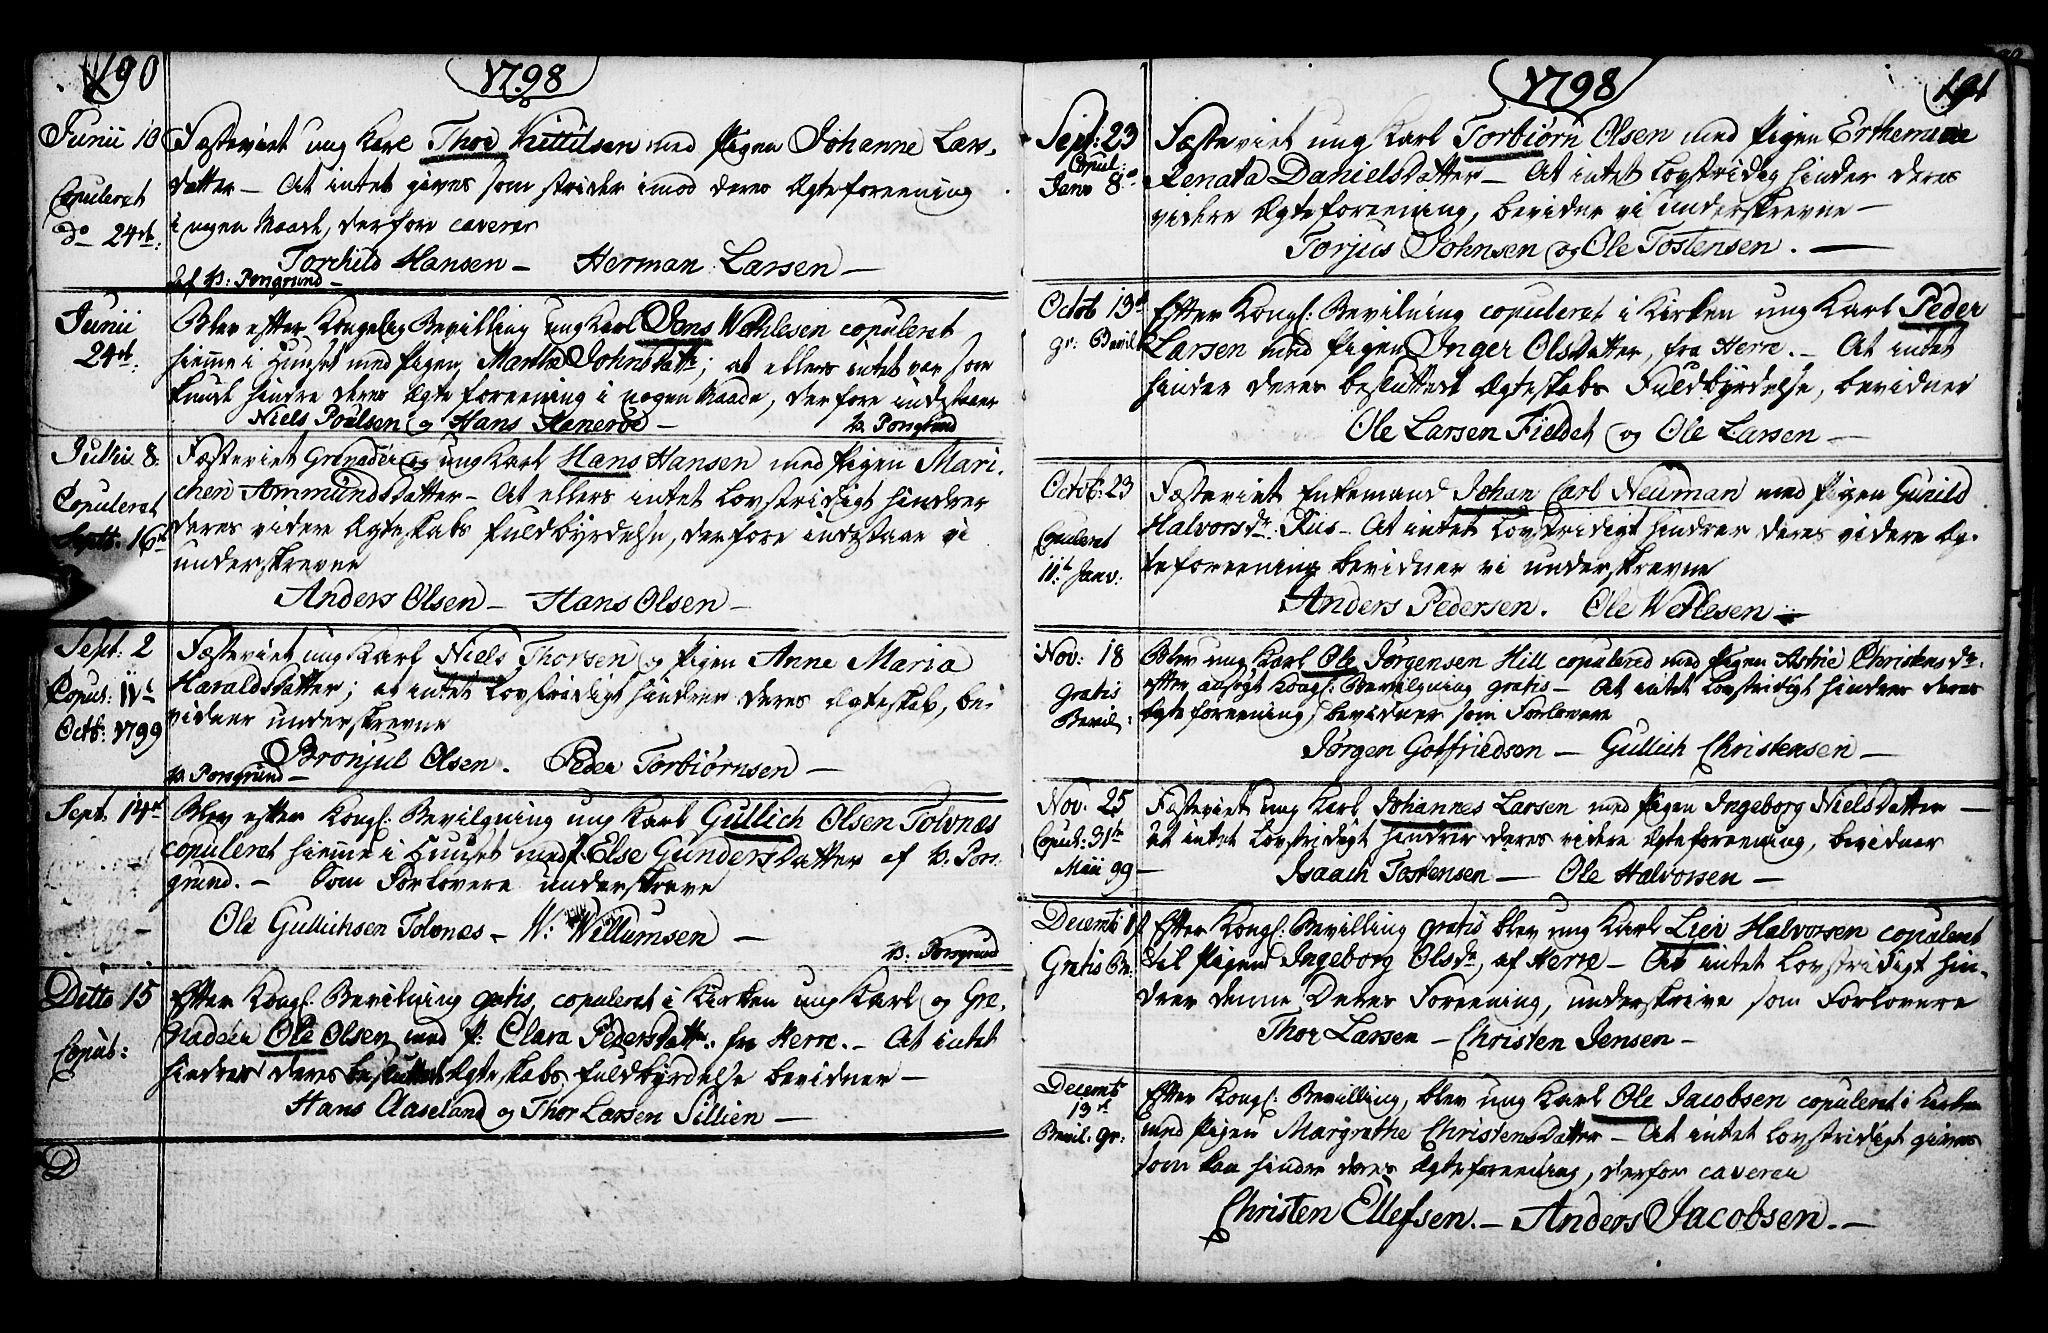 190
1798
Junii 10
Copuleret
do 24de:
Fæsteviet ung Karl Thor Kittilsen med Pigen Johanne Lars-
datter – At intet gives som strider imod deres Ægteforeening
i nogen Maade, derfore caverer
Torchild Hansen – Herman Larsen –
af V: Porsgrund –
Junii
24de:
Blev efter Kongelig Bevilling ung Karl Jens Wethlesen copuleret
hiemme i Huuset med Pigen Marthe Johnsdattr; at ellers intet var som
kunde hindre deres Ægteforeening i nogen Maade, derfore indestaaer
Niels Poulsen og Hans
V. Porsgrund
Julii 8.
Copuleret
Septb: 16de
Fæsteviet Grenadeer og ung Karl Hans Hansen med Pigen Mari-
chen Ammundsdatter – At ellers intet Lovstridigt hindrer
deres videre Ægteskabs fuldbyrdelse, derfore indestaae vi
underskrevne
Anders Olsen – Hans Olsen –
Sept: 2
Copul: 11te
Octb: 1799
Fæsteviet ung Karl Niels Thorsen og Pigen Anne Maria
Haraldsdatter; at intet Lovstridigt hindrer deres Ægteskab, be-
vidner underskrevne
Bronjul Olsen. Peder Torbiørnsen –
V. Porsgrund –
Sept. 14de
Blev efter Kongl: Bevilgning ung Karl Gullich Olsen Tolvnæs
copuleret hiemme i Huuset med P. Else Gundersdatter af V. Pors-
grund. – Som Forlovere underskreve
Ole Gullichsen Tolvnæs – W: Willumsen –
V: Porsgrund
Ditto 15
Copul:
Efter Kongl: Bevilning gratis, copuleret i Kirken ung Karl og Gre-
nadeer Ole Olsen med P: Clara Pedersdattr. fra Herre. – At intet
hindrer deres besluttede Ægteskabs fuldbyrdelse bevidner –
Hans Aaseland og Thor Larsen Sillien –
1798
191
Sept: 23
Copul:
Janv 8de
Fæsteviet ung Karl Torbiørn Olsen med Pigen
Renata Danielsdatter – At intet Lovstridig hinder deres
videre Ægteforeening, bevidner vi underskrevne –
Torjus Johnsen og Ole Tostensen. –
Octob 13de
gr: Bevil:
Efter Kongl: Bevilning copuleret i Kirken ung Karl Peder
Larsen med Pigen Inger Olsdatter, fra Herre. – At intet
hinder deres besluttede Ægteskabs Fuldbyrdelse, bevidner
Ole Larsen Fieldet og Ole Larsen –
Octob: 23
Copuleret
11te Janv:
Fæsteviet Enkemand Johan Carl Neuman med Pigen Gunild
Halvorsdr. Riis – At intet Lovstridigt hindrer deres videre Æg-
teforeening bevidner vi underskrevne
Anders Pedersen. Ole Wetlesen –
Nov: 18
Gratis
Bevil:
Blev ung Karl Ole Jørgensen Hill copulered med Pigen Astrie Christensdr.
efter ansøgt Kongl: Bevilgning gratis – At intet Lovstridigt hindrer deres
Ægteforeening, bevidner som Forlovere
Jørgen Gotfriedsen – Gullich Christensen –
Nov: 25
Copul: 31te
Maii 99 –
Fæsteviet ung Karl Johannes Larsen med Pigen Ingeborg Nielsdatter –
At intet Lovstridigt hindrer deres videre Ægteforeening, bevidner
Isaach Tostensen – Ole Halvorsen –
Decemb:
Gratis Be:
Efter Kongl: Bevilling gratis blev ung Karl Lier Halvorsen copuleret
til Pigen Ingeborg Olsdr, af Herre – At intet Lovstridigt hin-
drer denne Deres Foreening, underskrive som Forlovere
Thor Larsen – Christen Jensen –
Decembr
13de
Bevil: gr:
Efter Kongl: Bevilling, blev ung Karl Ole Jacobsen copuleret i Kirken
med Pigen Margrethe Christensdatter – At intet Lovstridigt gives
som kan hindre deres Ægteforeening, derfor caverer
Christen Ellefsen. – Anders Jacobsen. –